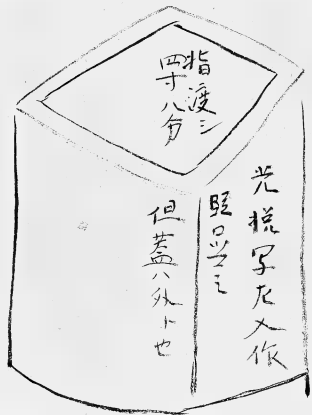 指渡シ
四寸八分
光悦写左入作
但蓋ハ外ト也